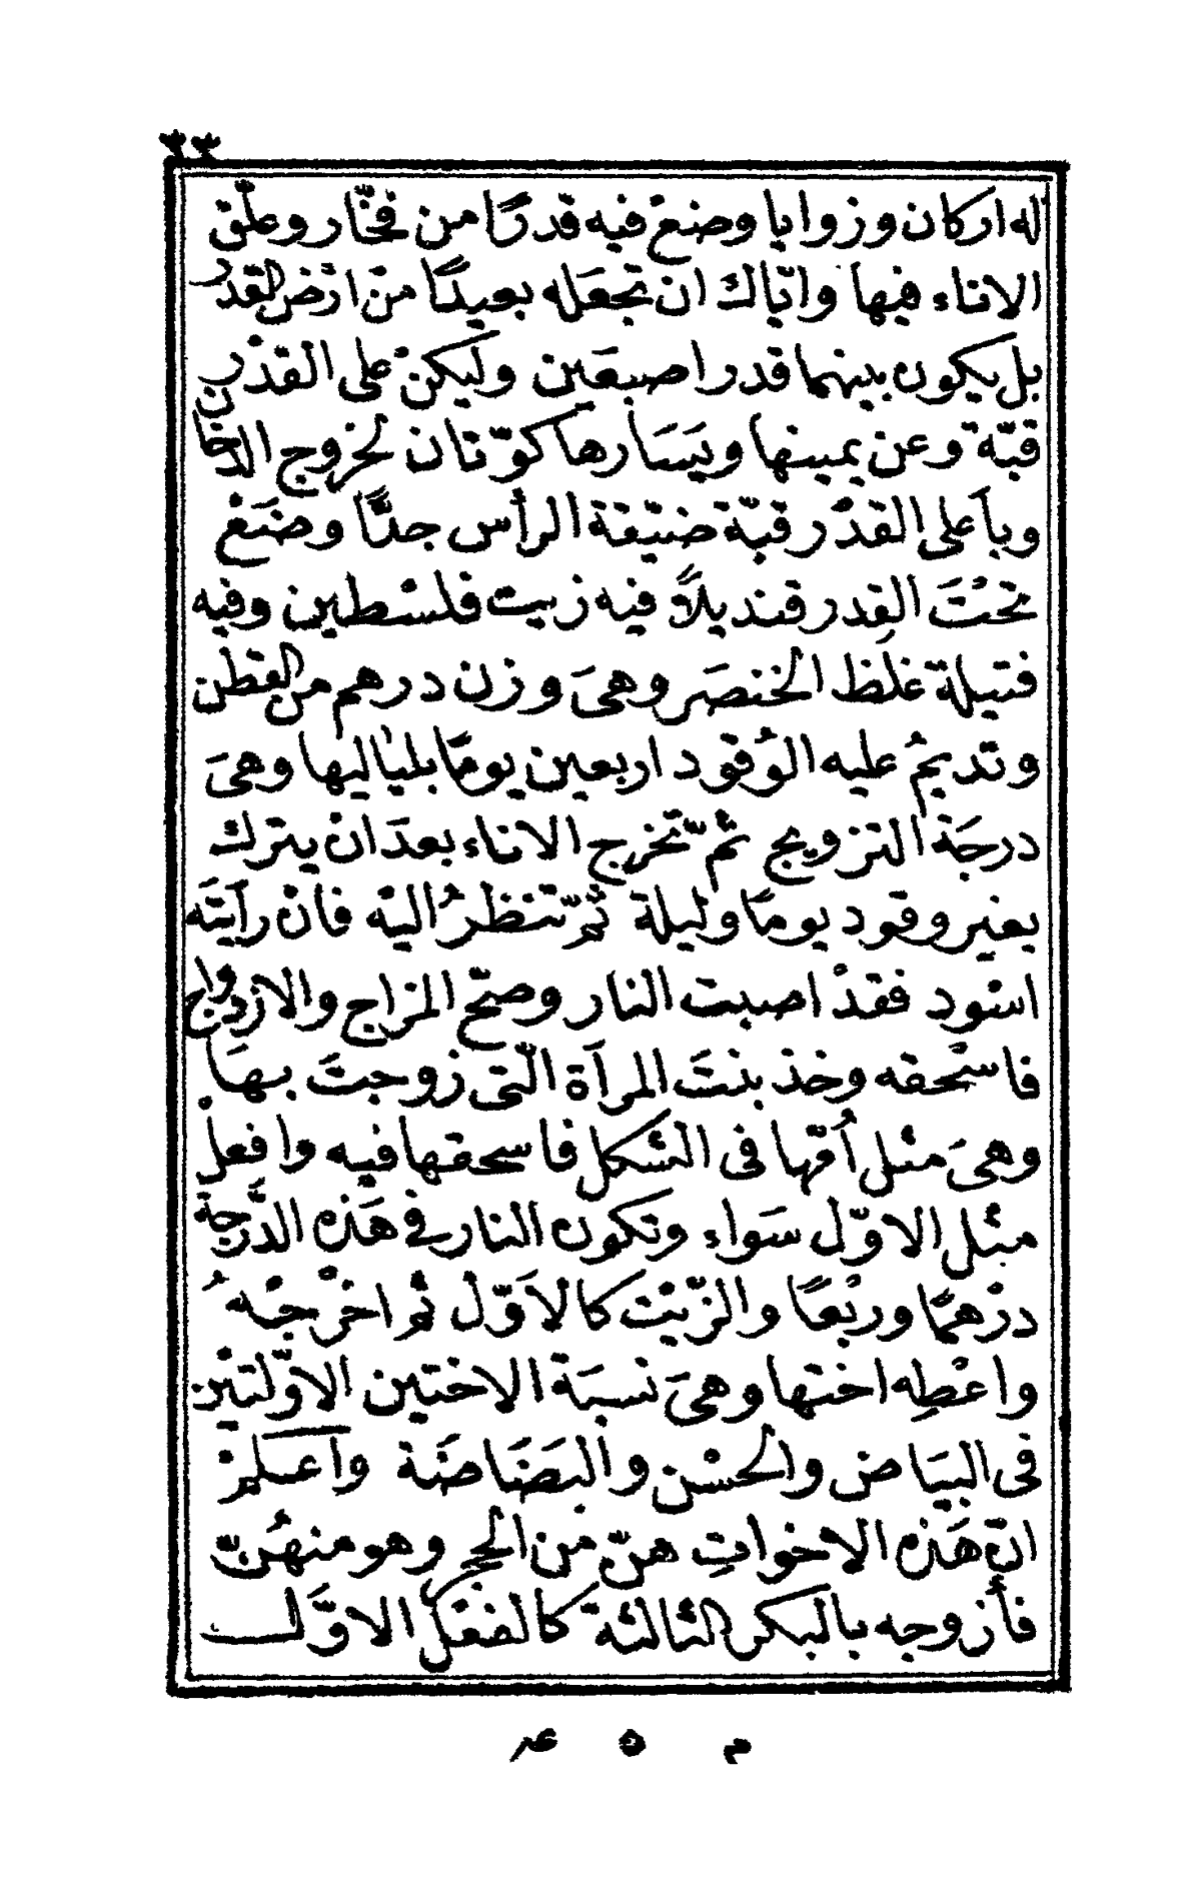 ٣٣
له اركان وزوايا وضعْ فيه قدرًا من فخّار وعلّق
الاناء فيها واِيّاك ان تجعَله بعيدًا من ارْض القدر
بل يكون بينهما قدر اصبعَين وليكنْ على القدْر
قبّة وعن يمينها ويَسَارها كوّتان لخروج الدّخان
وبأعلى القدْر قبّة ضيّقة الرأس جدًّا وضَعْ
تحْتَ القِدر قنديلاً فيه زيت فلسْطين وفيه
فتيلة غلَظ الخنصَر وهىَ وزن درهم من القطن
وتديمُ عليه الوُقود اربعين يومًا بلياليها وهىَ
درجَة التزويج ثمّ تخرج الاناء بعدَ انْ يترك
بغير وقود يومًا وليلة ثمّ تنظرُ اليْه فانْ رأيتَه
اسْود فقدْ اصبت النار وصحّ المزاج والازدواج
فاسْحقه وخذ بنتَ المرأة الّتى زوجتَ بهَا
وهىَ مثل اُمّها فى الشكل فاسحقها فيه وافعلْ
مثل الاوّل سَواء وتكون النار فى هَذه الدَّرجة
درْهمًا وربْعًا والزّيْت كالاَوّل ثم اخرْجْهُ
واعْطِه اختها وهىَ نسبَة الاختين الاوّلتيْن
فى البيَاض والحسْن والبَضَاضَة واَعلمْ
انّ هَذه الاخواتِ هنّ من الحجر وهو منهُنّ
فأزوجه بالبكر الثالثة كالفعْل الاوَّل
م ٥ عر